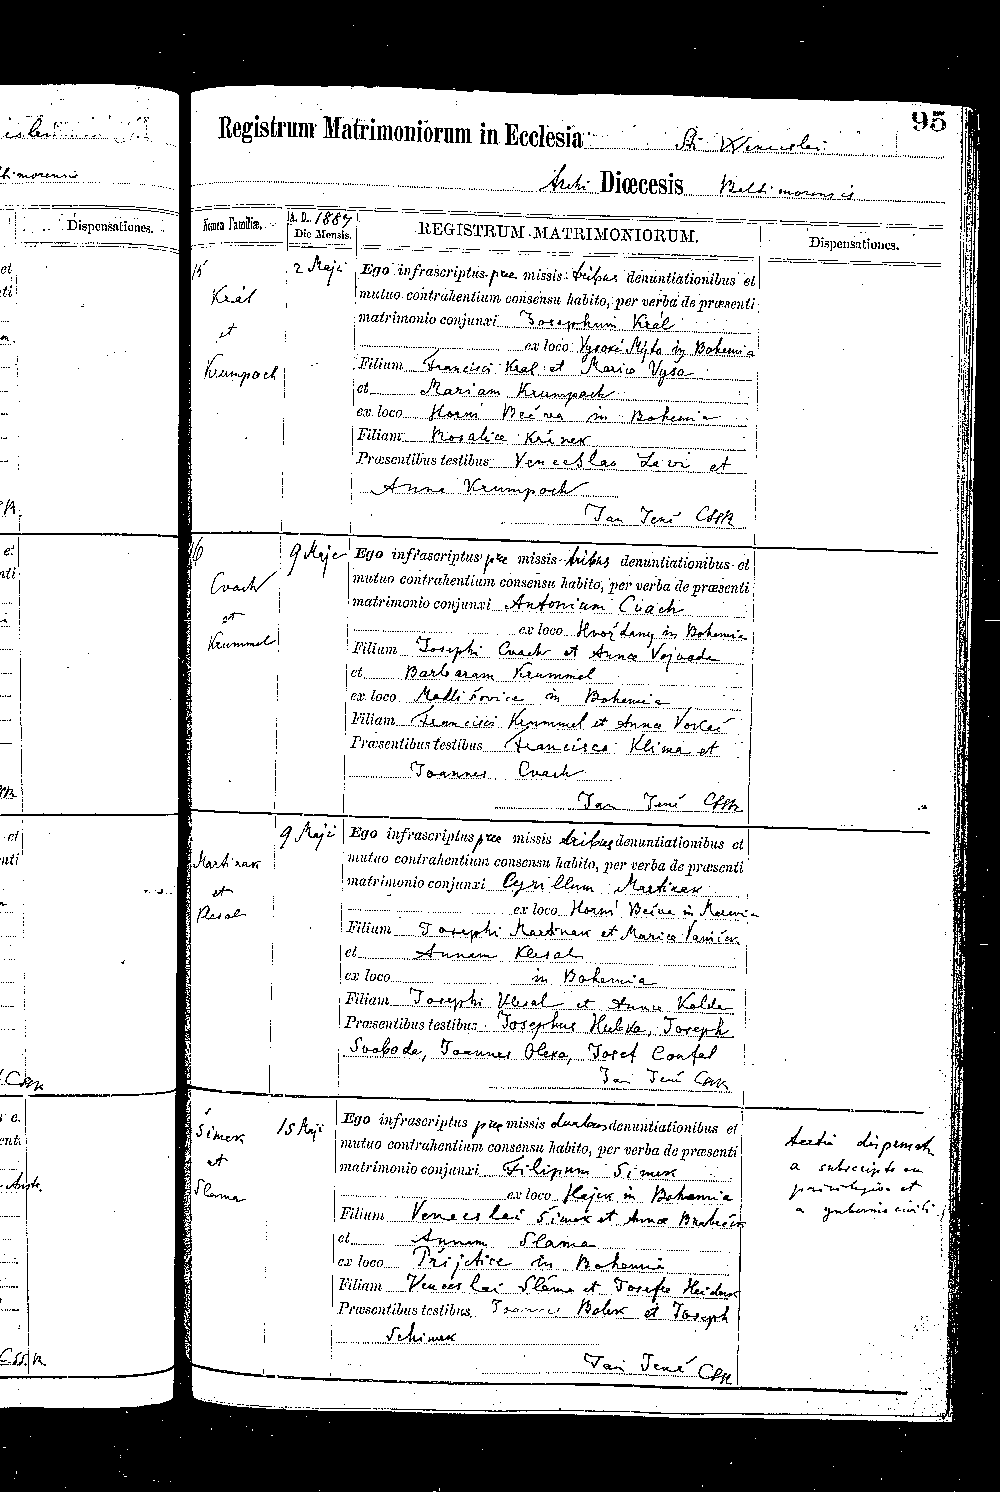 95
Registrum Matrimoniorum in Ecclesia Sti Wenceslai
Archi Diœcesis Baltimorensis
Dispensationes.
Nomen Familiæ.
A. D. 1887
Die Mensis.
REGISTRUM MATRIMONIORUM.
Dispensationes.
15
Král
et
Krumpoch
2 Maji
Ego infrascriptus præ missis tribus denuntiationibus et
mutuo contrahentium consensu habito, per verba de præsenti
matrimonio conjunxi Josephum Král
ex loco Vysoké Mýto in Bohemia
Filium Francisci Kral et Maria Vysa
et Mariam Krumpoch
ex loco Horní Bečva in Bohemia
Filiam Rosalice Křenek
Præsentibus testibus Venceslao et
Anna Krumpoch
Jan Jené CSSR
16
Cvach
et
Krummel
9 Maji
Ego infrascriptus præ missis tribus denuntiationibus et
mutuo contrahentium consensu habito, per verba de præsenti
matrimonio conjunxi Antonium Cvach
ex loco Hvožďany in Bohemia
Filium Josephi Cvach et Anna Vojvoda
et Barbaram Krummel
ex loco in Bohemia
Filiam Francisci Krummel et Anna
Præsentibus testibus Francisco Klima et
Joannes Cvach
Jan Jené CSSR
Martinak
et
Klesal
9 Maji
Ego infrascriptus præ missis tribus denuntiationibus et
mutuo contrahentium consensu habito, per verba de præsenti
matrimonio conjunxi Cyrillum Martinak
ex loco Horní Bečva in Moravia
Filium Josephi Martinak et Maria Vaniček
et Annam Klesal
ex loco in Bohemia
Filiam Josephi Klesal et Anna Kalda
Præsentibus testibus Josephus Hulka, Joseph
Svoboda, Joannes Olexa, Josef Confal
Jan Jené CSSR
Šimek
et
Slama
15 Maji
Ego infrascriptus præ missis duabus denuntiationibus et
mutuo contrahentium consensu habito, per verba de præsenti
matrimonio conjunxi Filipum Simek
ex loco Hajek in Bohemia
Filium Venceslai Šimek et Anna
et Annam Slama
ex loco Přijetice in Bohemia
Filiam Venceslai Sláma et Josefa
Præsentibus testibus Joannes Bolek et Joseph
Schimek
Jan Jené CSSR
tertia dispensat
a subscripto ex
privilegio et
a gubernio civili